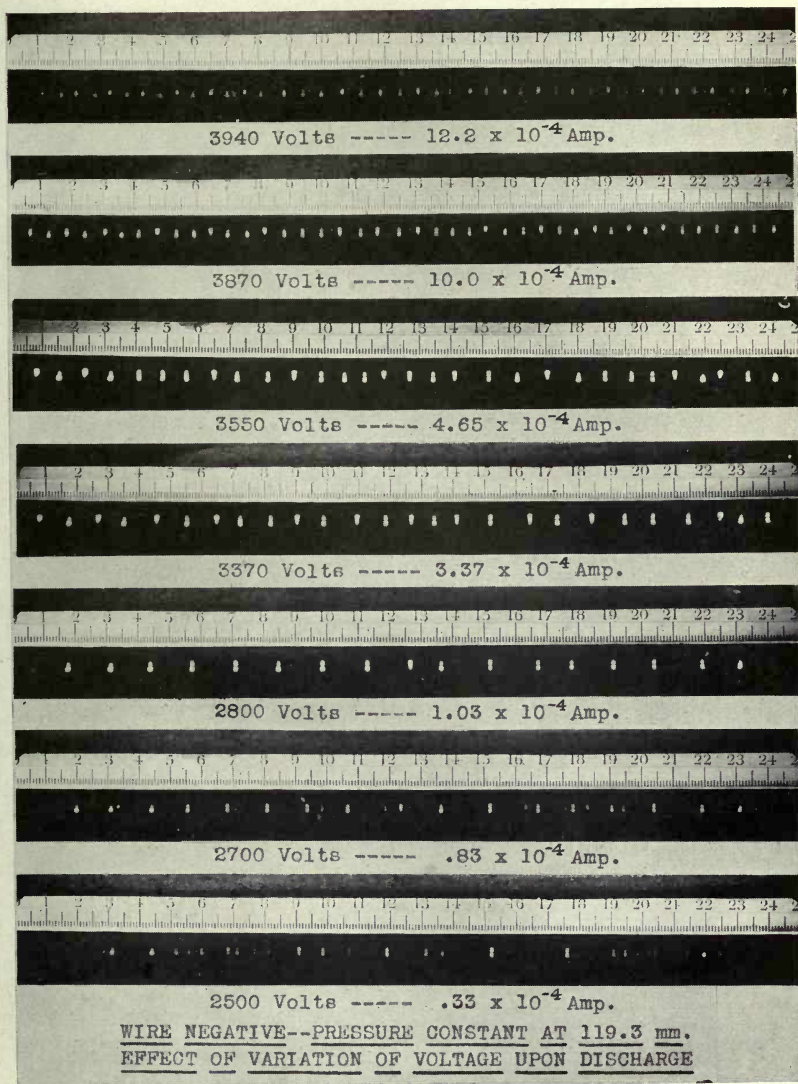 1 2 3 4 5 6 7 8 9 10 11 12 13 14 15 16 17 18 19 20 21 22 23 24 2
3940 Volts ----- 12.2 x 10⁻⁴ Amp.
1 2 3 4 5 6 7 8 9 10 11 12 13 14 15 16 17 18 19 20 21 22 23 24 2
3870 Volts ----- 10.0 x 10⁻⁴ Amp.
1 2 3 4 5 6 7 8 9 10 11 12 13 14 15 16 17 18 19 20 21 22 23 24 2
3550 Volts ----- 4.65 x 10⁻⁴ Amp.
1 2 3 4 5 6 7 8 9 10 11 12 13 14 15 16 17 18 19 20 21 22 23 24 2
3370 Volts ----- 3.37 x 10⁻⁴ Amp.
1 2 3 4 5 6 7 8 9 10 11 12 13 14 15 16 17 18 19 20 21 22 23 24 2
2800 Volts ----- 1.03 x 10⁻⁴ Amp.
1 2 3 4 5 6 7 8 9 10 11 12 13 14 15 16 17 18 19 20 21 22 23 24 2
2700 Volts ----- .83 x 10⁻⁴ Amp.
1 2 3 4 5 6 7 8 9 10 11 12 13 14 15 16 17 18 19 20 21 22 23 24 2
2500 Volts ----- .33 x 10⁻⁴ Amp.
WIRE NEGATIVE--PRESSURE CONSTANT AT 119.3 mm.
EFFECT OF VARIATION OF VOLTAGE UPON DISCHARGE